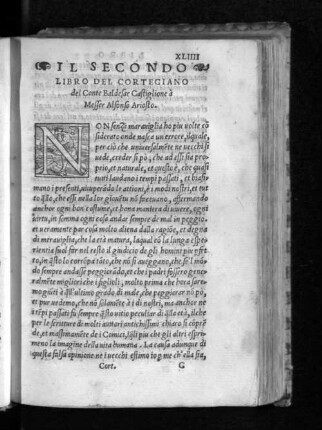 XLIIII
IL SECONDO
LIBRO DEL CORTEGIANO
del Conte Baldesar Castiglione à
Messer Alfonso Ariosto.
NON senza meraviglia ho piu volte cō
siderato onde nasca un errore, ilquale,
per ciò che universalmēte ne vecchi si
vede, creder si pò, che ad essi sia pro
prio, et naturale, et questo è, che quasi
tutti laudano i tempi passati, et biasi
mano i presenti, vituperādo le attioni, e i modi nostri, et tut
to quello, che essi nella lor gioventu nō faceuano, affermando
anchor ogni bon costume, et bona maniera di uiuere, ogni
virtu, in somma ogni cosa andar sempre de mal in peggio,
et ueramente par cosa molto aliena dalla ragiōe, et degna
di meraviglia, che la età matura, laqual cō la lunga espe=
rientia suol far nel resto il giudicio de gli homini piu pfet=
to, in q̄sto lo corrōpa tāto, che nō si aveggano, che se'l mō=
do sempre andasse peggiorādo, et che i padri fossero gene=
ralmēte migliori che i figlioli, molto prima che hora sare=
mo giūti à q̄ll'ultimo grado di male, che peggiorar nō pò,
et pur vedemo, che nō solamēte à i dì nostri, ma anchor ne
i tēpi passati fu sempre q̄sto vitio peculiar di q̄lla età, ilche
per le scritture di molti auttori antichissimi chiaro si cōprē=
de, et massimamēte de i Comici, liq̄li piu che gli altri espri=
meno la imagine della vita humana. La causa adunque di
questa falsa opinione ne i uecchi estimo io p me ch'ella sia,
Cort. G